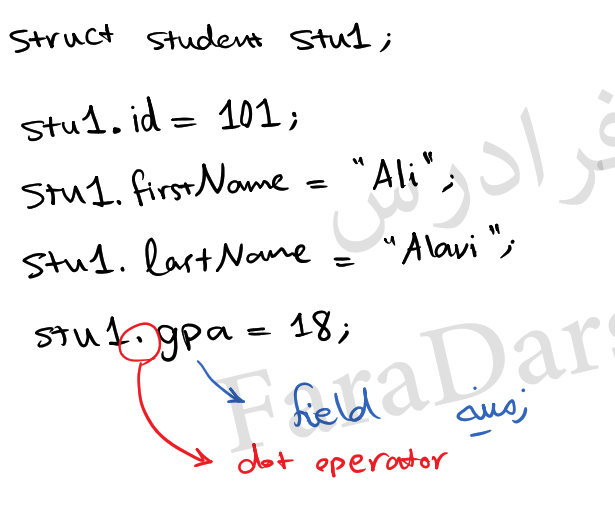 struct student stu1;
stu1.id = 101;
stu1.firstName = "Ali";
stu1.lastName = "Alavi";
stu1.gpa = 18;
field زمینه
dot operator
فرادرس
FaraDars